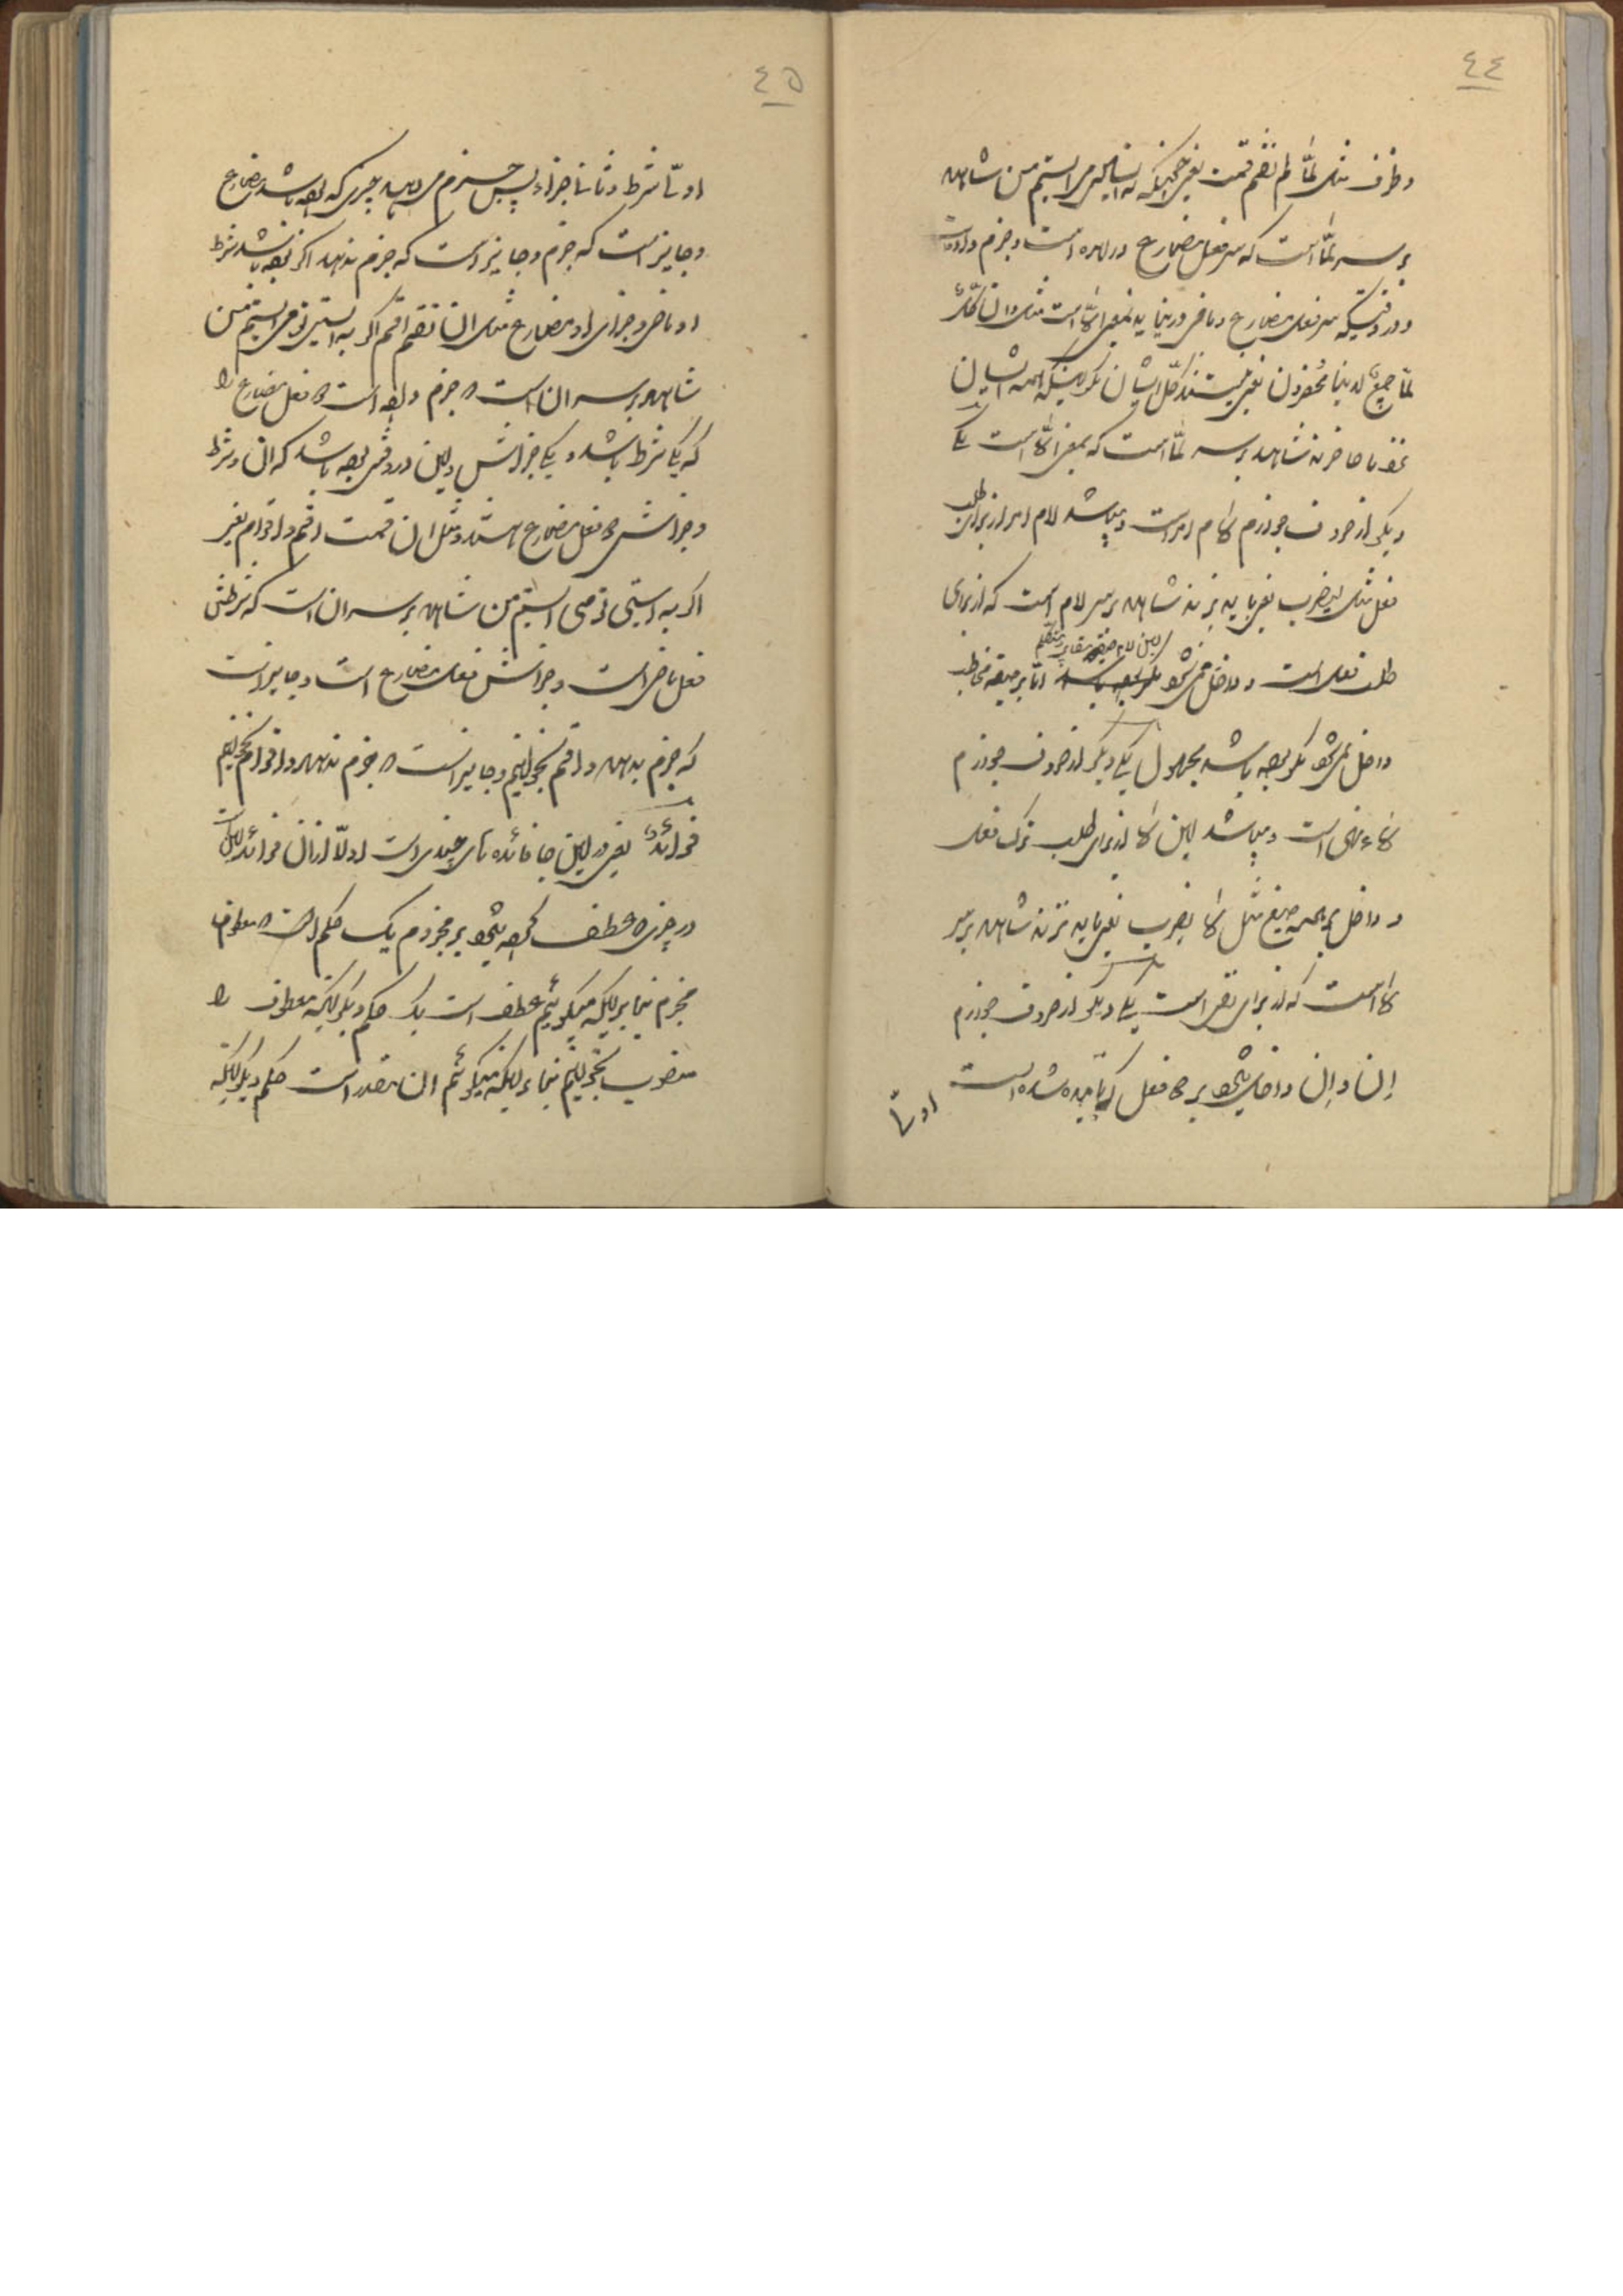 ٤٤
وظرف مثل لمّا لم تقم قمت یعنی حینیکه نه ایستادی می ایستم من شاهد
بر سر لمّا است که سر فعل مضارع در آمده است و جزم داده
و در وقتیکه سر فعل مضارع و ماضی در نیاید بمعنی الّا است مثل وان کلّ
لمّا جمیعٌ لدینا محضرون یعنی نیستند کلّ ایشان مگر اینکه همه ایشان
نزد ما حاضرند شاهد بر سر لمّا است که بمعنی الّا است یکی
دیگر از حروف جوازم لام امر است و میباشد لام امر از برای طلب
فعل مثل لیضرب یعنی باید بزند شاهد بر سر لام است که از برای
این لام بر صیغه متکلم
طلب فعل است و داخل نمی شود امّا بر صیغه مخاطب
داخل نمی شود مگر بوده باشد مجهول یکی دیگر از حروف جوازم
لاء نهی است و میباشد این لا از برای طلب ترک فعل
و داخل بر همه صیغ مثل لا یضرب یعنی باید نزند شاهد بر سر
لا است که از برای نهی است یکی دیگر از حروف جوازم
إن و إن داخل میشود بر دو فعل که نامیده شده است
اولا
٤٥
اولاً شرط و ثانیاً جزاء پس جزم می دهد چیزی که بوده باشد مضارع
و جایز است که جزم و جایز است که جزم ندهد اگر بوده باشد شرط
او ماضی و جزای او مضارع مثل ان تقم اقم اگر به ایستی تو می ایستم من
شاهد بر سر ان است که جزم داده است دو فعل مضارع را
که یکی شرط باشد و یکی جزائش و این در وقتی بوده باشد که ان و شرط
و جزائش دو فعل مضارع هستند و مثل ان قمت اقم و اقوم یعنی
اگر به ایستی تو می ایستم من شاهد بر سر ان است که شرطش
فعل ماضی است و جزائش فعل مضارع است و جایز است
که جزم بدهد و اقم بخوانیم و جایز است که جزم ندهد و اقوم بخوانیم
فوائدٌ یعنی در این جا فائده های چندی است اولاً از آن فوائد این است
در چیزی که عطف کرده میشود بر مجزوم یک حکم است که معطوف
مجزوم بنابر اینکه میگوئیم عطف است یک حکم دیگر اینکه معطوف را
منصوب بخوانیم بناء بر اینکه میگوئیم ان مقدر است حکم دیگر اینکه